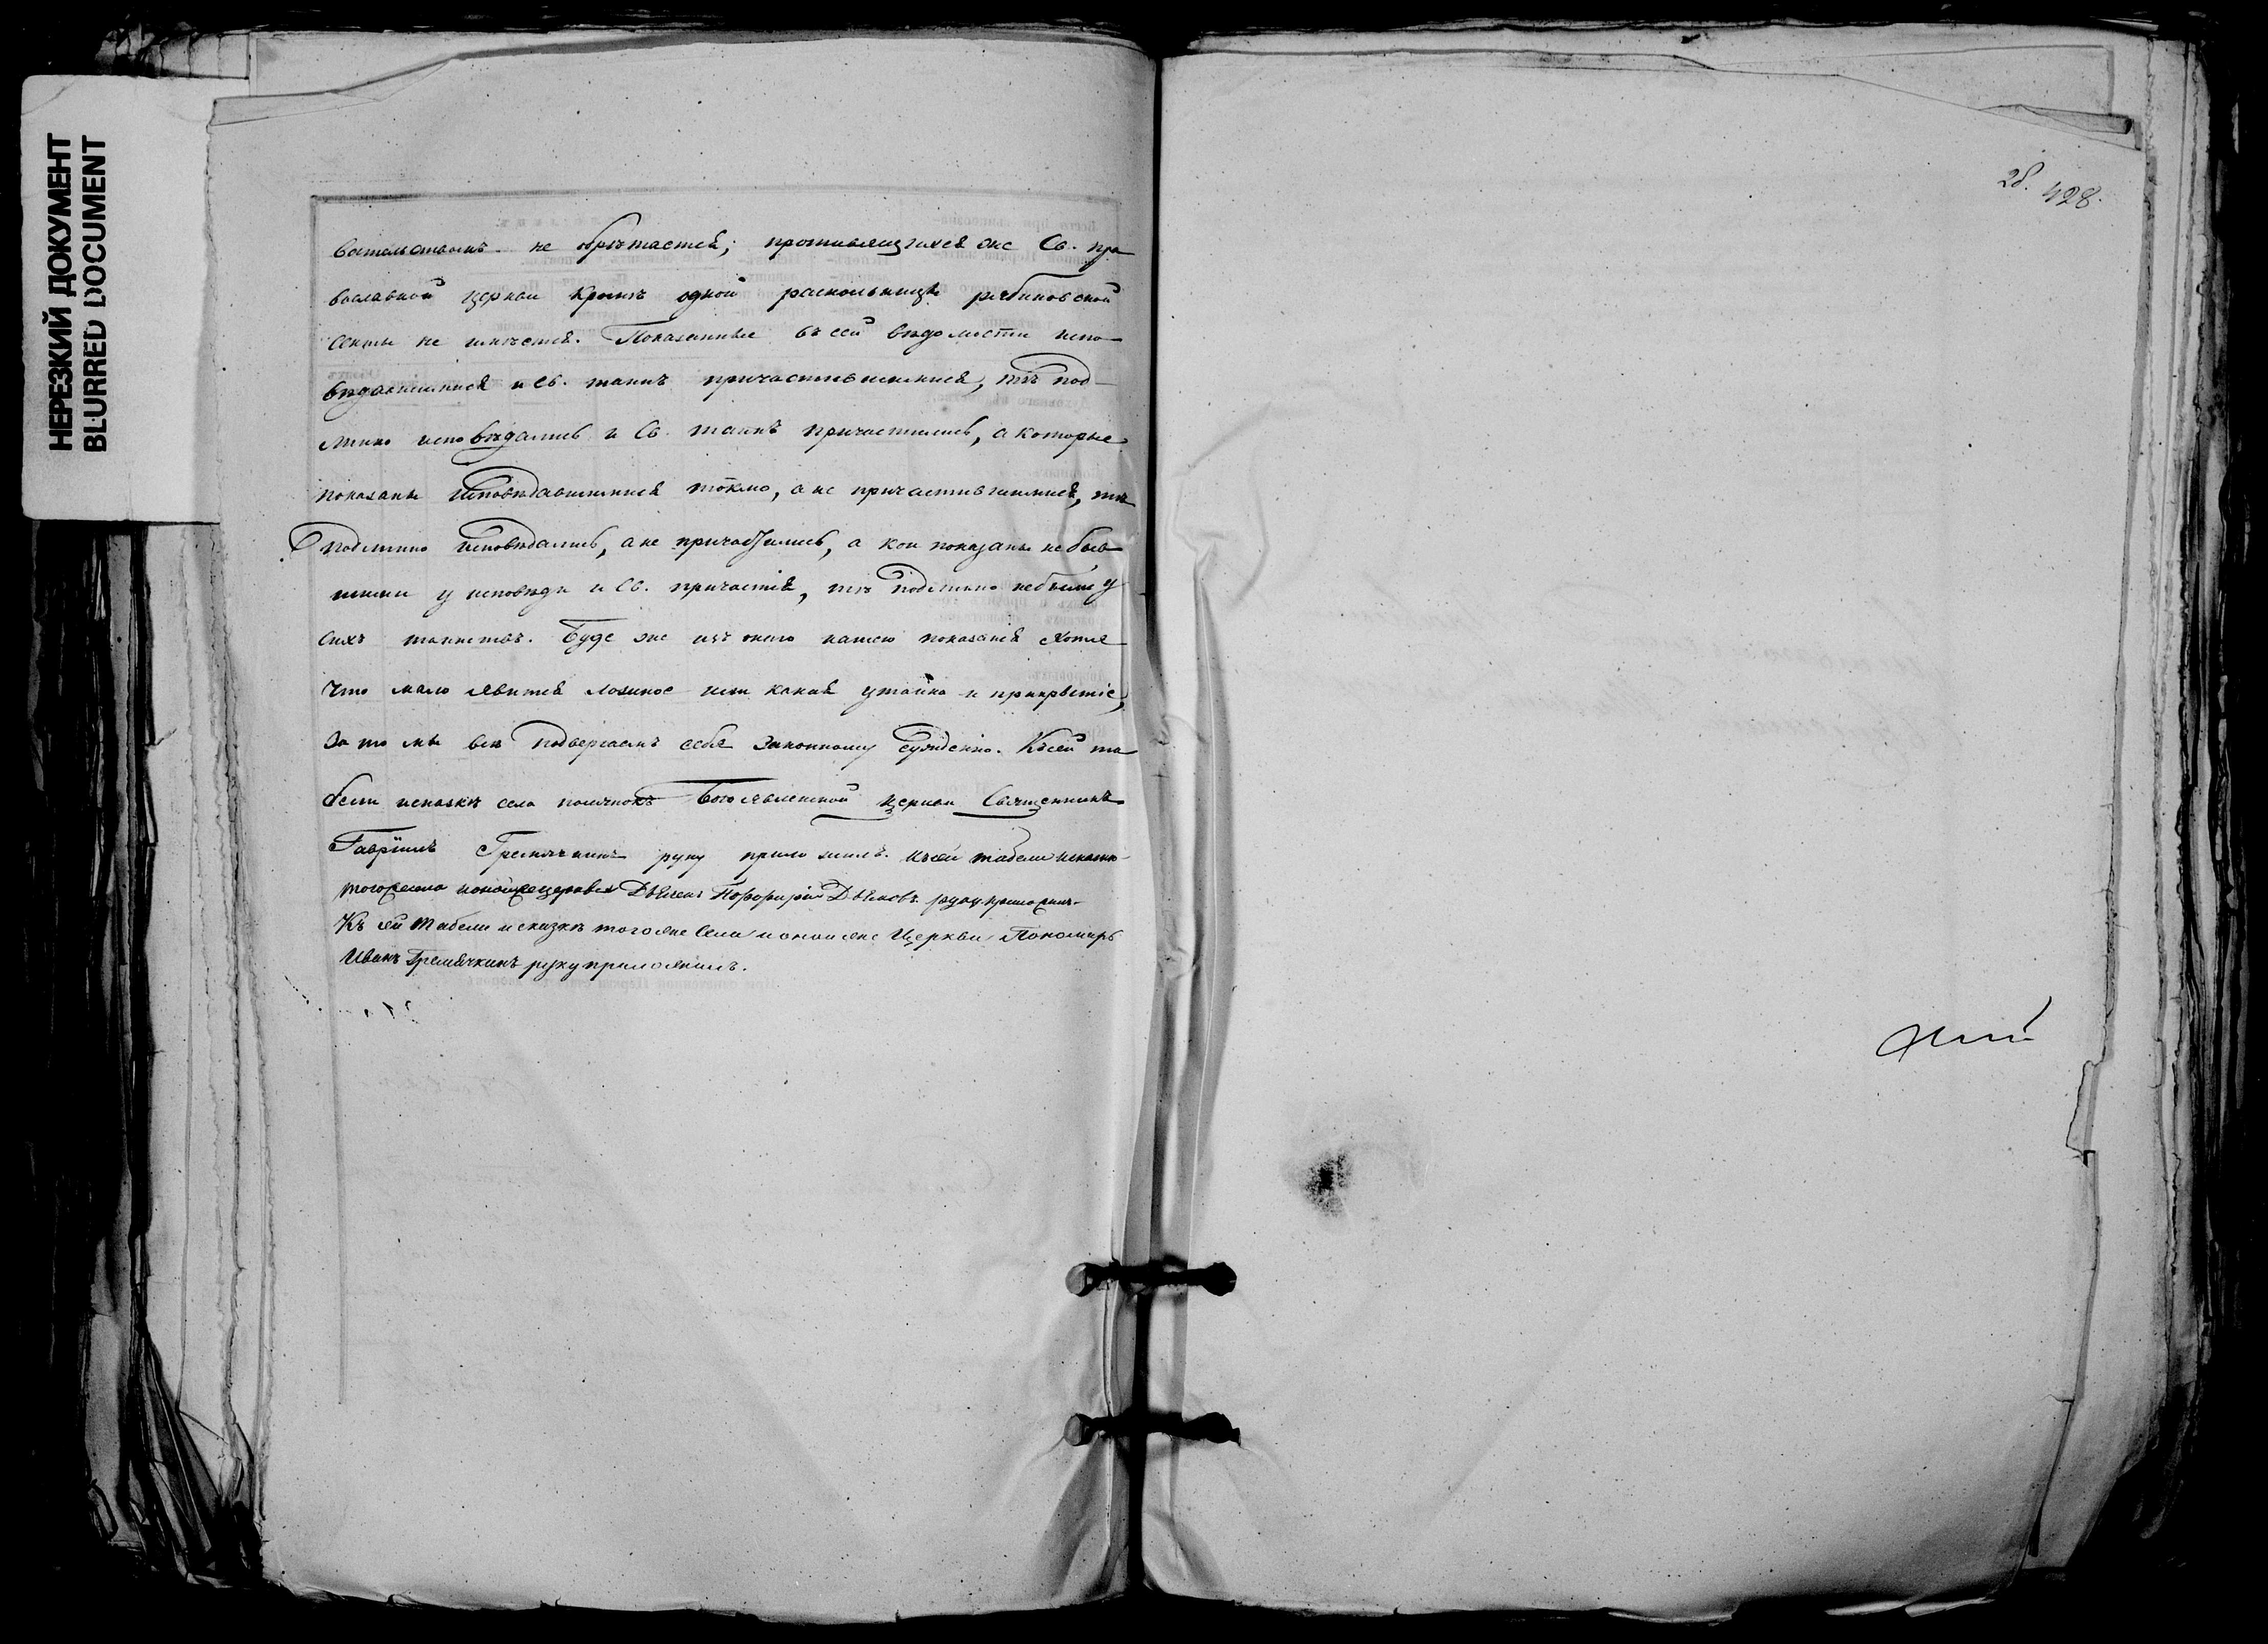 НЕРЕЗКИЙ ДОКУМЕНТ
BLURRED DOCUMENT
вательствомъ не обрѣтается; противящихся же Св. пра
вославной церкви кромѣ одной раскольницы рябиновской
секты не имѣется. Показанные въ сей вѣдомости испо-
вѣдавшимися и Св. таинъ причастившимися, тѣ под-
линно исповѣдались и Св. таинъ причастились, а которые
показаны исповѣдавшимися токмо, а не причастившимися, тѣ
подлинно исповѣдались, а не причастились, а кои показаны не быв
шими у исповѣди и Св. причастія, тѣ подлинно небыли у
сихъ таинствъ. Буде же изъ онаго нашего показанія хотя
что мало явится ложное или какая утайка и прикрытіе,
за то мы всѣ подвергаемъ себя законному сужденію. Къ сей та
бели и сказкѣ села Богоявленской церкви Священникъ
Гавріилъ Гремячкинъ руку приложилъ. Къ сей табели и сказкѣ
тогожъ села и онойже церкви Дьячекъ Порфирій Дьяковъ руку приложилъ.
Къ сей табели и сказкѣ того же Села и оной же Церкви Пономарь
Иванъ Гремячкинъ руку приложилъ.
428.